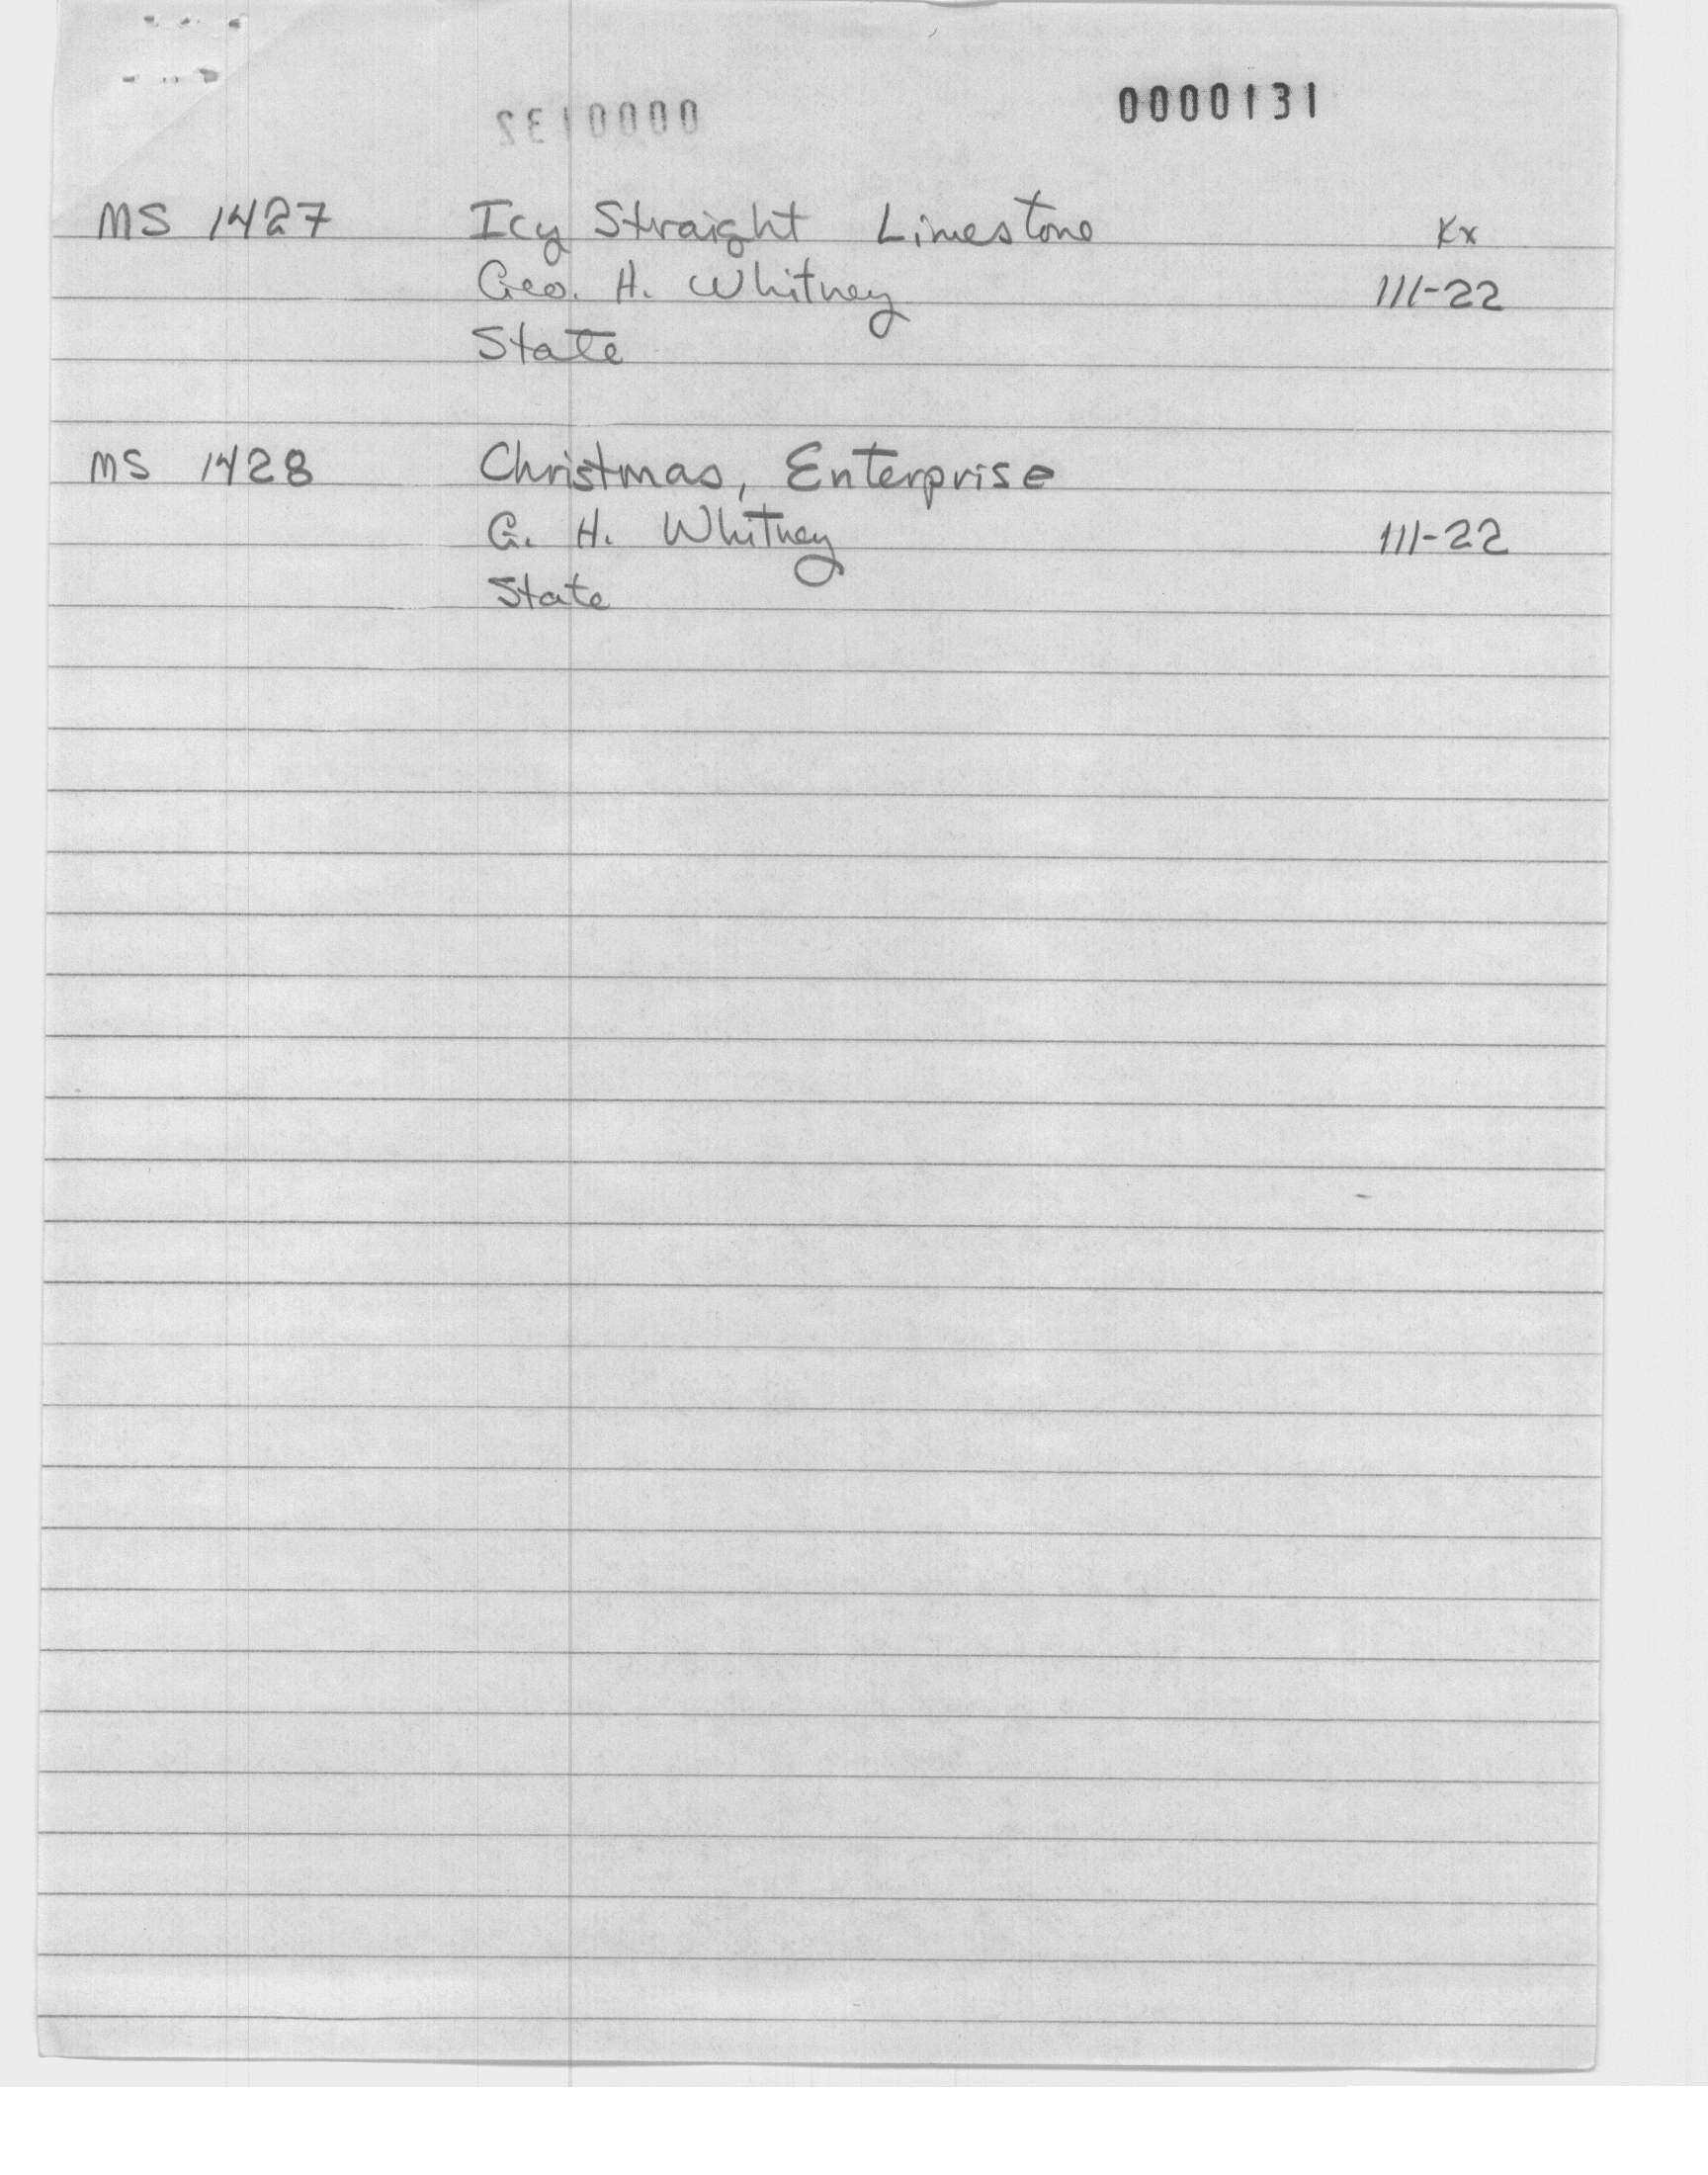 0000132
0000131
MS 1427 Icy Straight Limestone Kx
Geo. H. Whitney 111-22
State
MS 1428 Christmas, Enterprise
G. H. Whitney 111-22
State